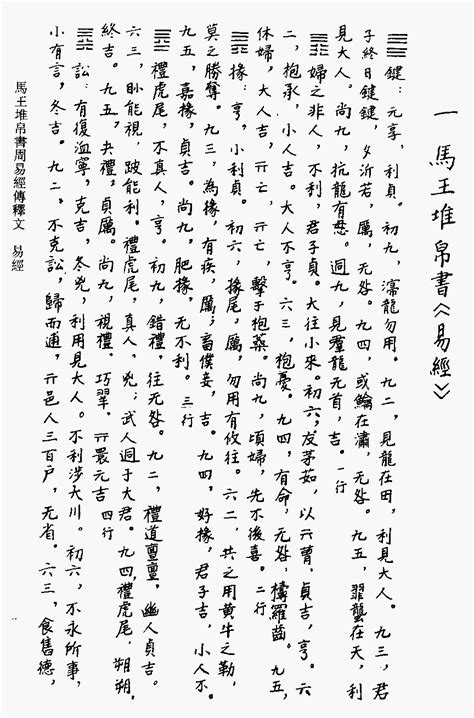 一 馬王堆帛書《易經》
䷀鍵:元享,利貞。初九,濳龍勿用。九二,見龍在田,利見大人。九三,君
子終日鍵鍵,夕沂若,厲,无咎。九四,或在潚,无咎。九五,在天,利
見大人。尚九,抗龍有悬。迵九,見羣龍无首,吉。一行
䷋婦之非人,不利,君子貞。大往小來。初六,犮茅茹,以亓曹,貞吉,亨。六
二,枹承,小人吉。大人不亨。六三,枹憂。九四,有命,无咎,檮羅齒。九五,
休婦,大人吉,亓亡,亓亡,擊于枹桑。尚九,頃婦,先不後喜。二行
䷠掾:亨,小利貞。初六,掾尾,厲,勿用有攸往。六二,共之用黃牛之勒,
莫之勝奪。九三,為掾,有疾,厲;畜僕妾,吉。九四,好掾,君子吉,小人不。
九五,嘉掾,貞吉。尚九,肥掾,无不利。三行
䷉禮虎尾,不真人,亨。初九,錯禮,往无咎。九二,禮道亶亶,幽人貞吉。
六三,眇能視,跛能利。禮虎尾,真人,兇;武人迵于大君。九四,禮虎尾,朔朔,
終吉。九五,夬禮,貞厲。尚九,視禮,巧翠,亓睘元吉 四行
䷅訟:有復洫寧,克吉,冬兇,利用見大人。不利涉大川。初六,不永所事,
小有言,冬吉。九二,不克訟,歸而逋,亓邑人三百户,无省。六三,食舊德,
馬王堆帛書周易經傳釋文 易經